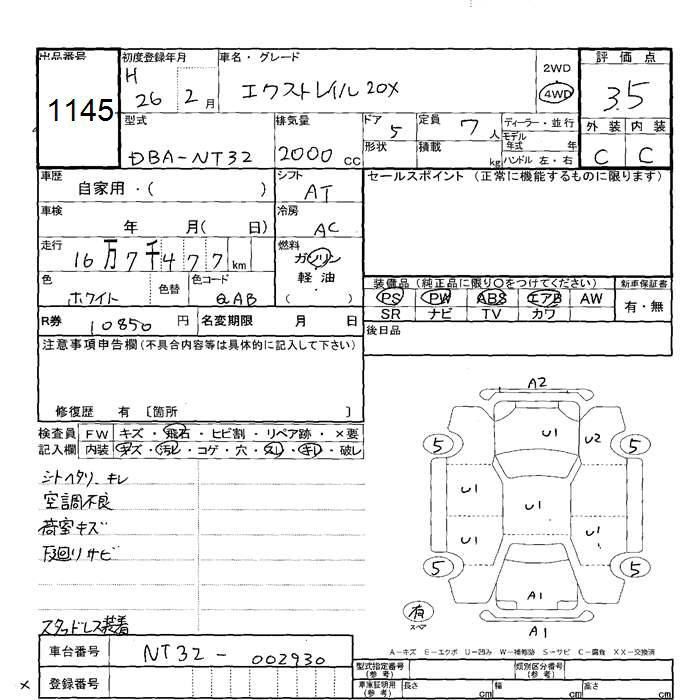 出品番号 初度登録年月 車名・グレード 評価点
1145 H 26 2月 エクストレイル 20X 2WD 4WD 3.5
型式 排気量 ドア 5 定員 7人 ディーラー・並行 外装 内装
DBA-NT32 2000cc 形状 積載 kg モデル年式 年 ハンドル 左・右 C C
車歴 自家用・( ) シフト AT セールスポイント (正常に機能するものに限ります)
車検 年 月( 日) 冷房 AC
走行 16万7千477km 燃料 ガソリン 軽油 ( )
色 ホワイト 色替 色コード QAB 装備品 (純正品に限り○をつけてください) 新車保証書
PS PW ABS エアB AW 有・無
SR ナビ TV カワ
R券 10850円 名変期限 月 日 後日品
注意事項申告欄 (不具合内容等は具体的に記入して下さい)
修復歴 有 〔箇所 〕
検査員 FW キズ・飛石・ヒビ割・リペア跡・×要
記入欄 内装 キズ・汚レ・コゲ・穴・スレ・キレ・破レ
シートヘタリ、キレ
空調不良
荷室キズ
下回りサビ
スタッドレス装着
A2
U1 U2
5 5
U1 U1 U1 U1 U1
5 5
A1
有 スペア A1
A-キズ E-エクボ U-凹み W-補修跡 S-サビ C-腐食 XX-交換済
車台番号 NT32-002930
型式指定番号 (参考) 類別区分番号 (参考)
× 登録番号 車庫証明用 (参考) 長さ cm 幅 cm 高さ cm